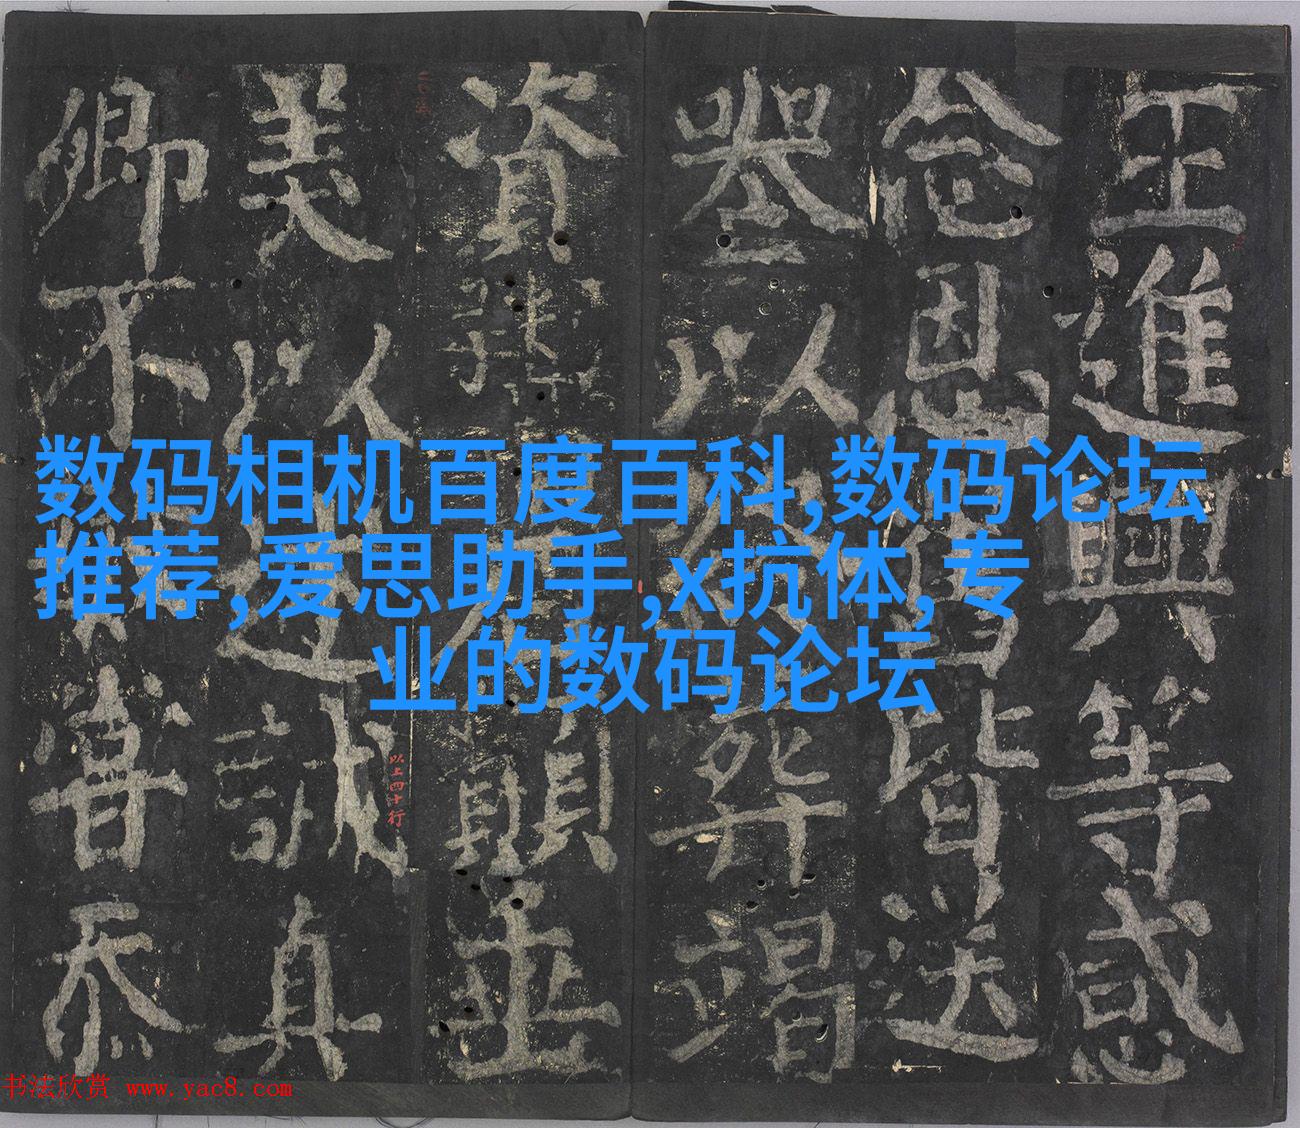 数码相机百度百科,数码论坛
推荐,爱思助手,x抗体,专
业的数码论坛
王進興等感
念恩皆送
以葬竭
資願並
美以過誠真
以上四十行
卿不善忝
书法欣赏 www.yac8.com